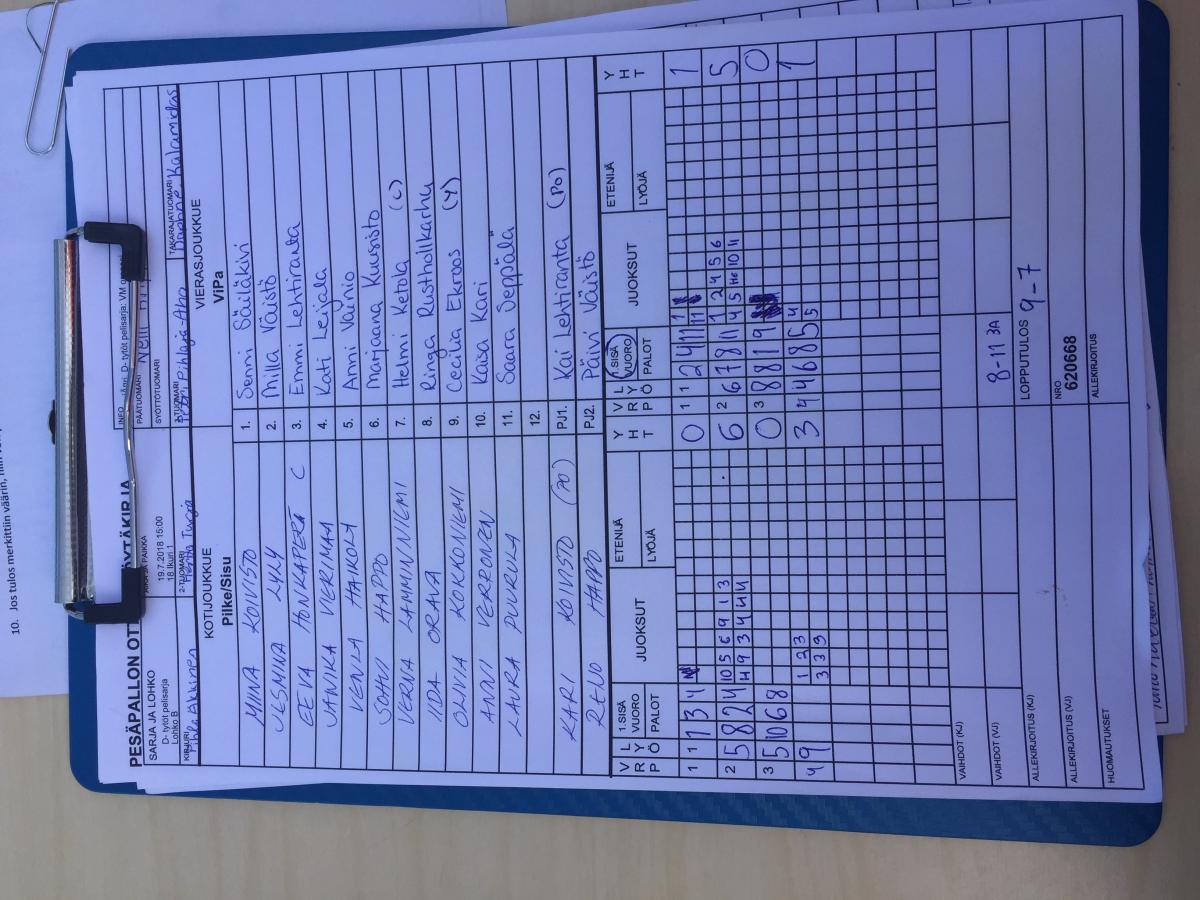 10. Jos tulos merkittiin väärin, niin
PESÄPALLON
SARJA JA LOHKO
D- tytöt pelisarja
Lohko B
19.7.2018 15:00
18 Ikuri 1
PÄÄTUOMARI Nelli
SYÖTTÖTUOMARI
KIRJURI
2-TUOMARI
TAKARAJATUOMARI
KOTIJOUKKUE
Pilke/Sisu
VIERASJOUKKUE
ViPa
MINNA KOIVISTO 1. Senni Säiläkivi
JESMINA LYLY 2. Milla Väistö
EEVA HONKAPERÄ C 3. Emmi Lehtiranta
JANIKA VERIMAA 4. Kati Leijala
VENLA HAIKOLA 5. Anni Vainio
SOHVI HAPPO 6. Marjaana Kuusisto
VERNA LAMMINNIEMI 7. Helmi Ketola (C)
IIDA ORAVA 8. Ringa Rustholkarhu
OLIVIA KOKKONIEMI 9. Cecilia Ekroos (Y)
ANNI VERRONEN 10. Kaisa Kari
LAURA PUURULA 11. Saara Seppälä
12.
KARI KOIVISTO (PO) PJ1. Kai Lehtiranta (PO)
REINO HAPPO PJ2. Päivi Väistö
V R P L Y Ö 1.SISÄ VUORO PALOT JUOKSUT ETENIJÄ LYÖJÄ Y H T
V R P L Y Ö 1.SISÄ VUORO PALOT JUOKSUT ETENIJÄ LYÖJÄ Y H T
1 1 1 3 4 0 1 1 2 4 11 1 11 1
2 5 8 2 4 10 5 6 9 1 3 6 2 6 7 8 11 1 2 4 5 6 5
4 9 3 4 4 4 4 5 10 11
3 5 10 6 8 0 3 8 8 1 9 0
4 9 1 2 3 3 4 4 6 8 5 4 1
3 3 9 5
VAIHDOT (KJ)
VAIHDOT (VJ) 8-11 3A
ALLEKIRJOITUS (KJ) LOPPUTULOS 9-7
ALLEKIRJOITUS (VJ) NRO
620668
HUOMAUTUKSET ALLEKIRJOITUS